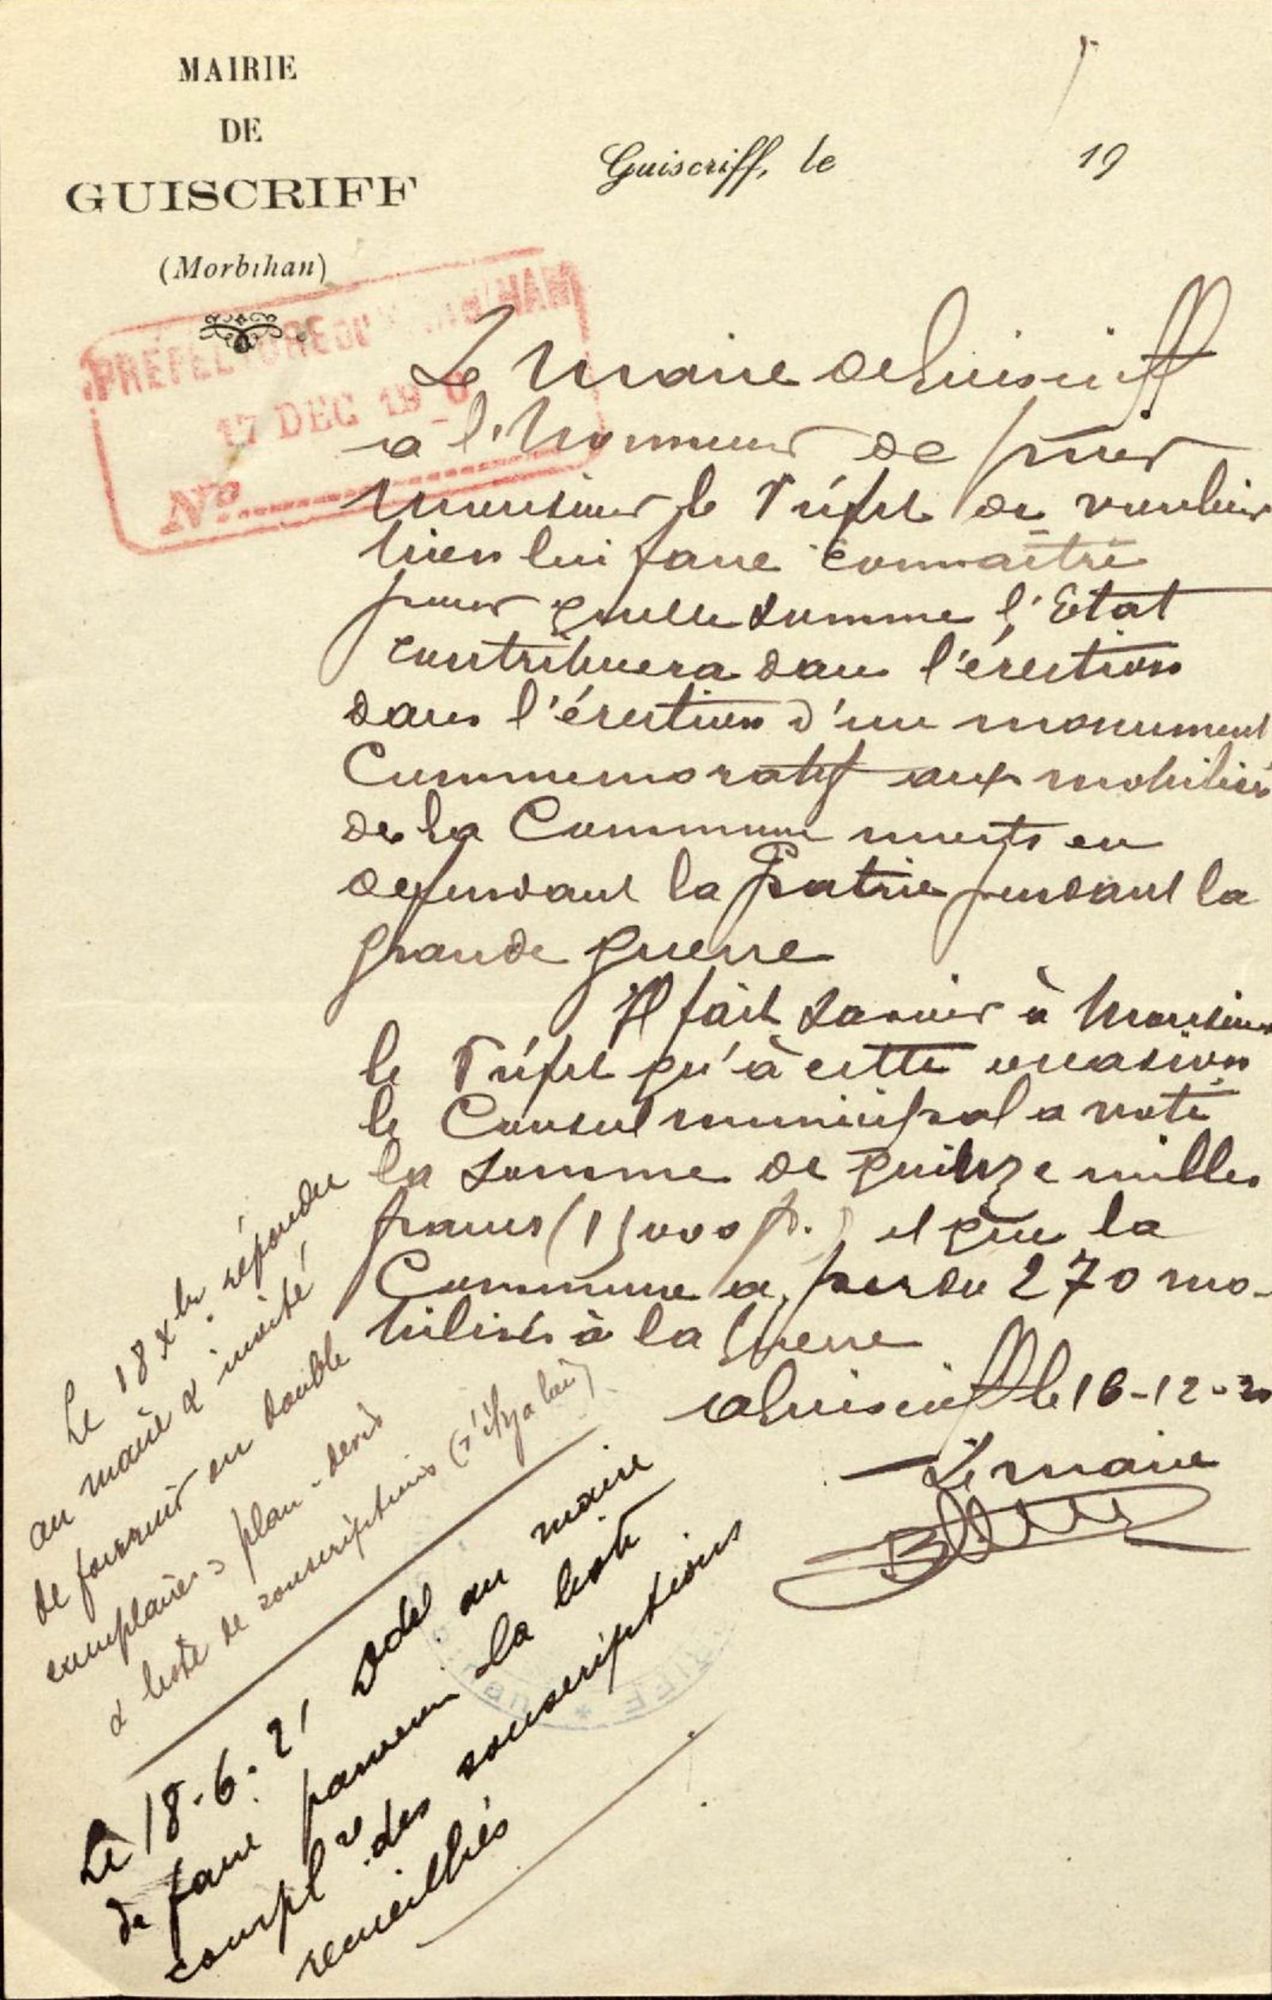 MAIRIE
DE
GUISCRIFF
(Morbihan)
Guiscriff, le 19
PRÉFECTURE DU MORBIHAN
17 DEC 19 0
No
Le Maire de Guiscriff
a l'honneur de prier
Monsieur le Préfet de vouloir
bien lui faire connaître
pour quelle somme l'Etat
contribuera dans l'érection
dans l'érection d'un monument
Commemoratif aux mobilisés
de la Commune morts en
defendant la Patrie pendant la
grande guerre
Il fait savoir à Monsieur
le Préfet qu'à cette occasion
le Conseil municipal a voté
la somme de quinze milles
francs (15000 f.) et que la
Commune a perdu 270 mo-
bilisés à la guerre
Guiscriff le 16-12-20
Le maire
Le 18 Xbre répondu
au maire & invité
de fournir en double
exemplaires : plan - devis
& liste de souscriptions (s'il y a lieu)
Le 18-6-21 au maire
de faire parvenir la liste
complre des souscriptions
recueillies